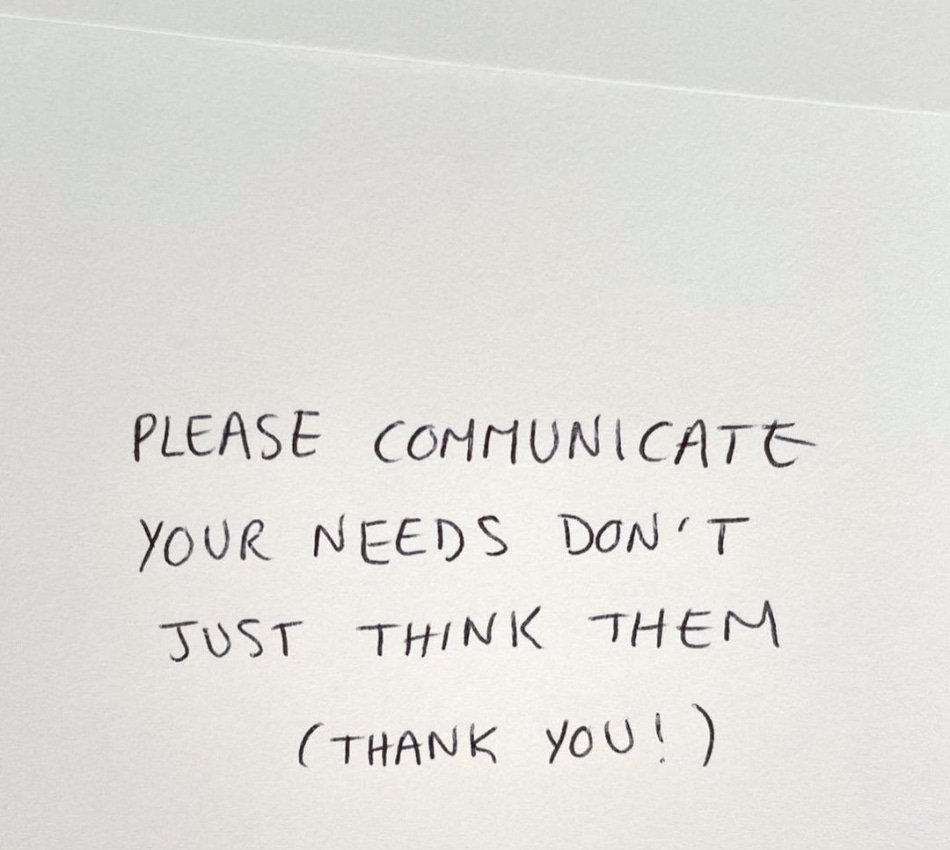 PLEASE COMMUNICATE
YOUR NEEDS DON'T
JUST THINK THEM
(THANK YOU!)